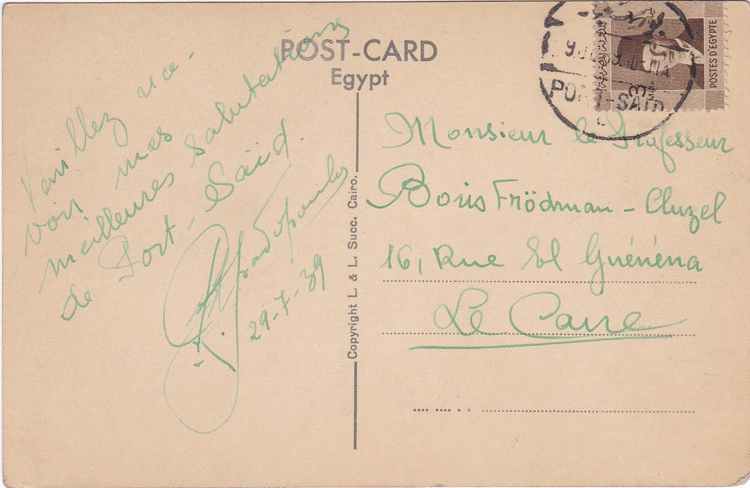 POST-CARD
Egypt
Veuillez rece-
voir mes
meilleures salutations
de Port-Saïd.
29-7-39
Copyright L. & L. Succ. Cairo.
POSTES D'EGYPTE
PORT-SAID
Monsieur le Professeur
Boris Frödman-Cluzel
16, Rue El Guénéna
Le Caire